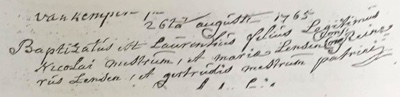 vankemper
26ta augusti 1765
Baptizatus est Laurentius filius Legitimus
Nicolai mestrum, et maria Lensen Rein=
rus Lensen, et gertrudis mestrum patrini